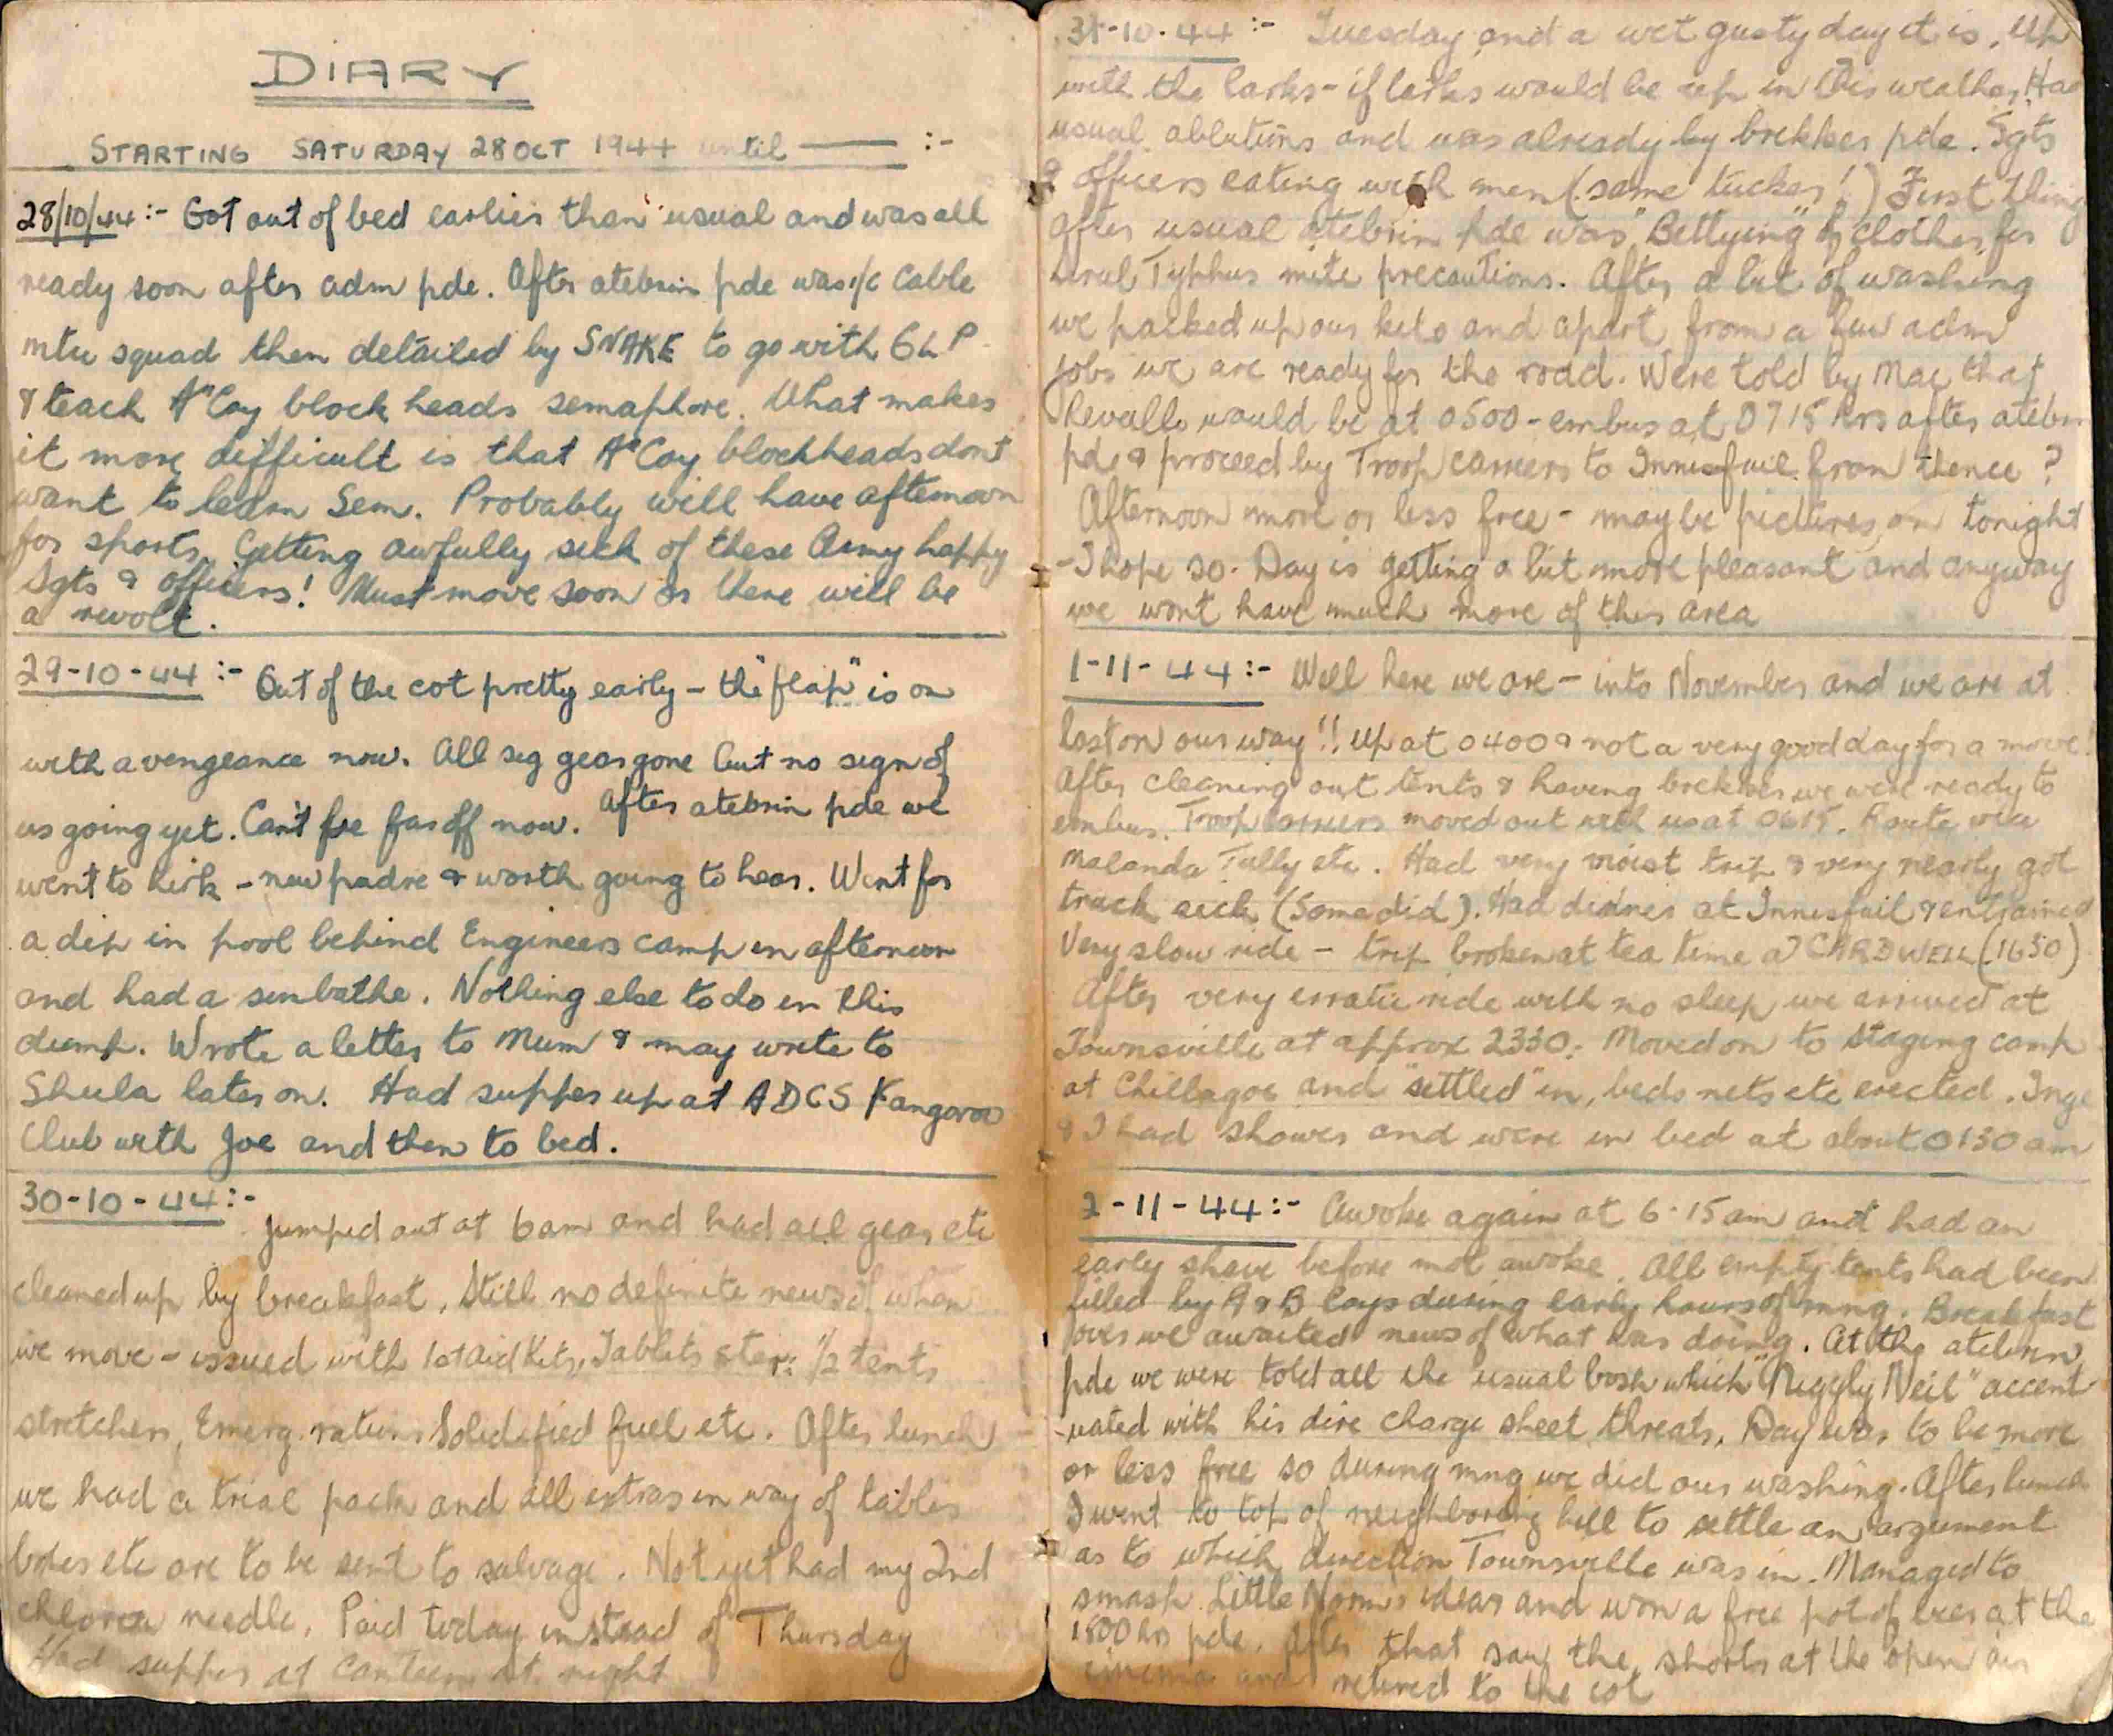 DIARY
STARTING SATURDAY 28 OCT 1944 until —— :-
28/10/44:- Got out of bed earlier than usual and was all
ready soon after adm pde. After atebrin pde was i/c Cable
mtce squad then detailed by SNAKE to go with GLP
& teach "A" Coy block heads semaphore. What makes
it more difficult is that "A" Coy blockheads dont
want to learn Sem. Probably will have afternoon
for sports. Getting awfully sick of these Army happy
Sgts & officers! Must move soon or there will be
a revolt.
29-10-44:- Out of the cot pretty early – the "flap" is on
with a vengeance now. All sig gear gone but no sign of
us going yet. Can't be far off now. After atebrin pde we
went to kirk – new padre & worth going to hear. Went for
a dip in pool behind Engineers camp in afternoon
and had a sunbathe. Nothing else to do in this
dump. Wrote a letter to Mum & may write to
Sheila later on. Had supper up at ADCS Kangaroo
Club with Joe and then to bed.
30-10-44:-
Jumped out at 6 am and had all gear etc
cleaned up by breakfast. Still no definite news of when
we move – issued with 1st Aid Kits, Tablets ster: 1/2 tents
stretchers, Emerg. rations Solidified fuel etc. After lunch
we had a trial pack and all extras in way of tables
boxes etc are to be sent to salvage. Not yet had my 2nd
chlorea needle. Paid today instead of Thursday
Had supper at Canteen at night
31-10-44:- Tuesday and a wet gusty day it is. Up
with the larks – if larks would be up in this weather. Had
usual ablutions and was already by brekker pde. Sgts
& officers eating with men (same tucker!) First thing
after usual atebrin pde was "Bettying" of clothes for
Scrub Typhus mite precautions. After a bit of washing
we packed up our kits and apart from a few adm
jobs we are ready for the road. Were told by Mac that
Revalle would be at 0500 – embus at 0715 hrs after atebrin
pde & proceed by Troop carriers to Innesfail from thence ?
Afternoon more or less free – maybe pictures on tonight
– I hope so. Day is getting a bit more pleasant and anyway
we wont have much more of this area
1-11-44:- Well here we are – into November and we are at
last on our way!! Up at 0400 & not a very good day for a move!
After cleaning out tents & having brekker we were ready to
embus. Troop carriers moved out with us at 0615. Route via
Malanda Tully etc. Had very moist trip & very nearly got
truck sick (Some did). Had dinner at Innesfail & entrained
Very slow ride – trip broken at tea time at CARDWELL (1630)
After very erratic ride with no sleep we arrived at
Townsville at approx 2330. Moved on to staging camp
at Chillagoe and "settled" in, beds nets etc erected. Inge
& I had shower and were in bed at about 0130 am
2-11-44:- Awoke again at 6.15 am and had an
early shave before mob awoke. All empty tents had been
filled by A & B Coys during early hours of mng. Breakfast
over we awaited news of what was doing. At the atebrin
pde we were told all the usual bosh which "Niggly Neil" accent
-uated with his dire charge sheet threats. Day was to be more
or less free so during mng we did our washing. After lunch
I went to top of neighboring hill to settle an argument
as to which direction Townsville was in. Managed to
smash Little Norm's ideas and won a free pot of beer at the
1800 hrs pde. After that saw the shorts at the open air
cinema and retired to the cot